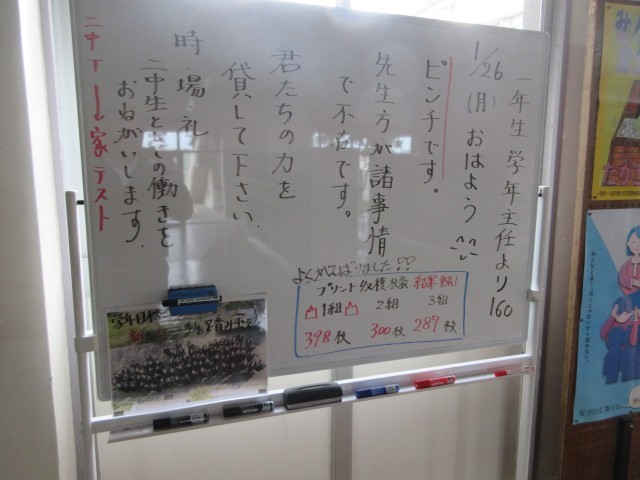 一年生 学年主任より160
1/26(月)おはよう
ピンチです。
先生方が諸事情
で不在です。
君たちの力を
貸して下さい。
時・場・礼
二中生としての働きを
おねがいします。
二中T→家テスト
よくがんばりました!!
プリント 枚数 結果発表!
1組 2組 3組
398枚 300枚 287枚
学年目標